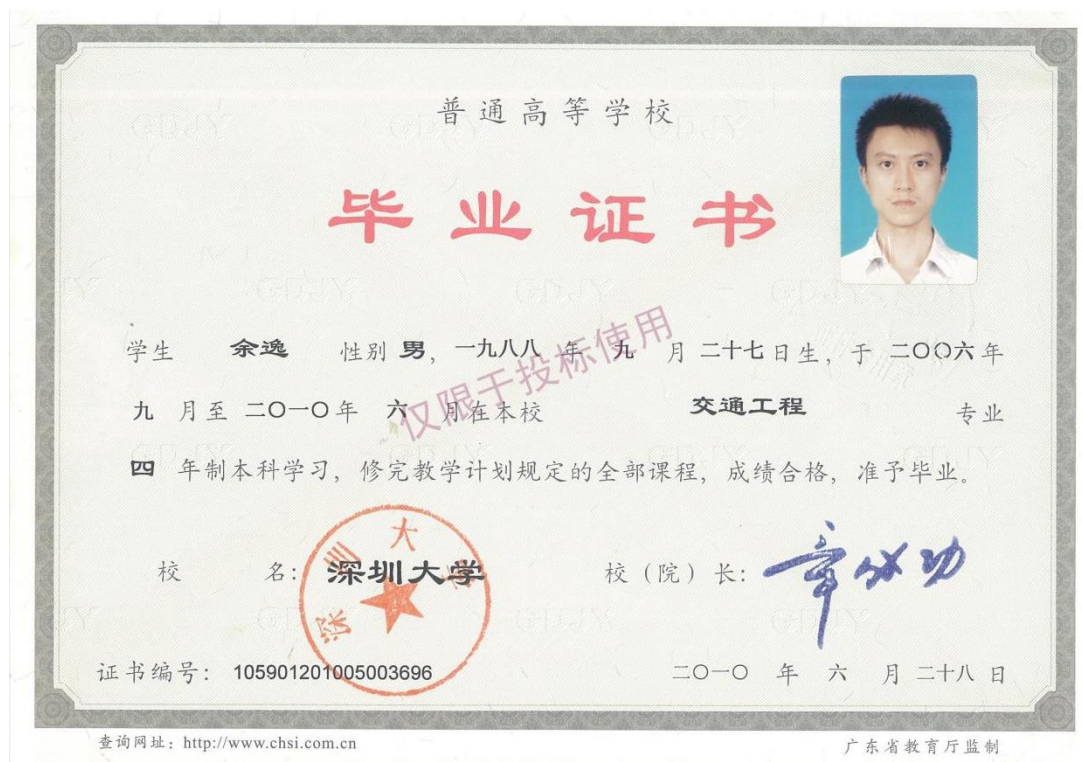 普通高等学校
毕业证书
学生 余逸 性别 男，一九八八 年 九 月 二十七 日生，于 二〇〇六 年
九 月至 二〇一〇 年 六 月在本校 交通工程 专业
四 年制本科学习，修完教学计划规定的全部课程，成绩合格，准予毕业。
仅限于投标使用
校 名：深圳大学 校（院）长：章必功
深圳大学
证书编号：105901201005003696 二〇一〇 年 六 月 二十八 日
查询网址：http://www.chsi.com.cn 广东省教育厅监制